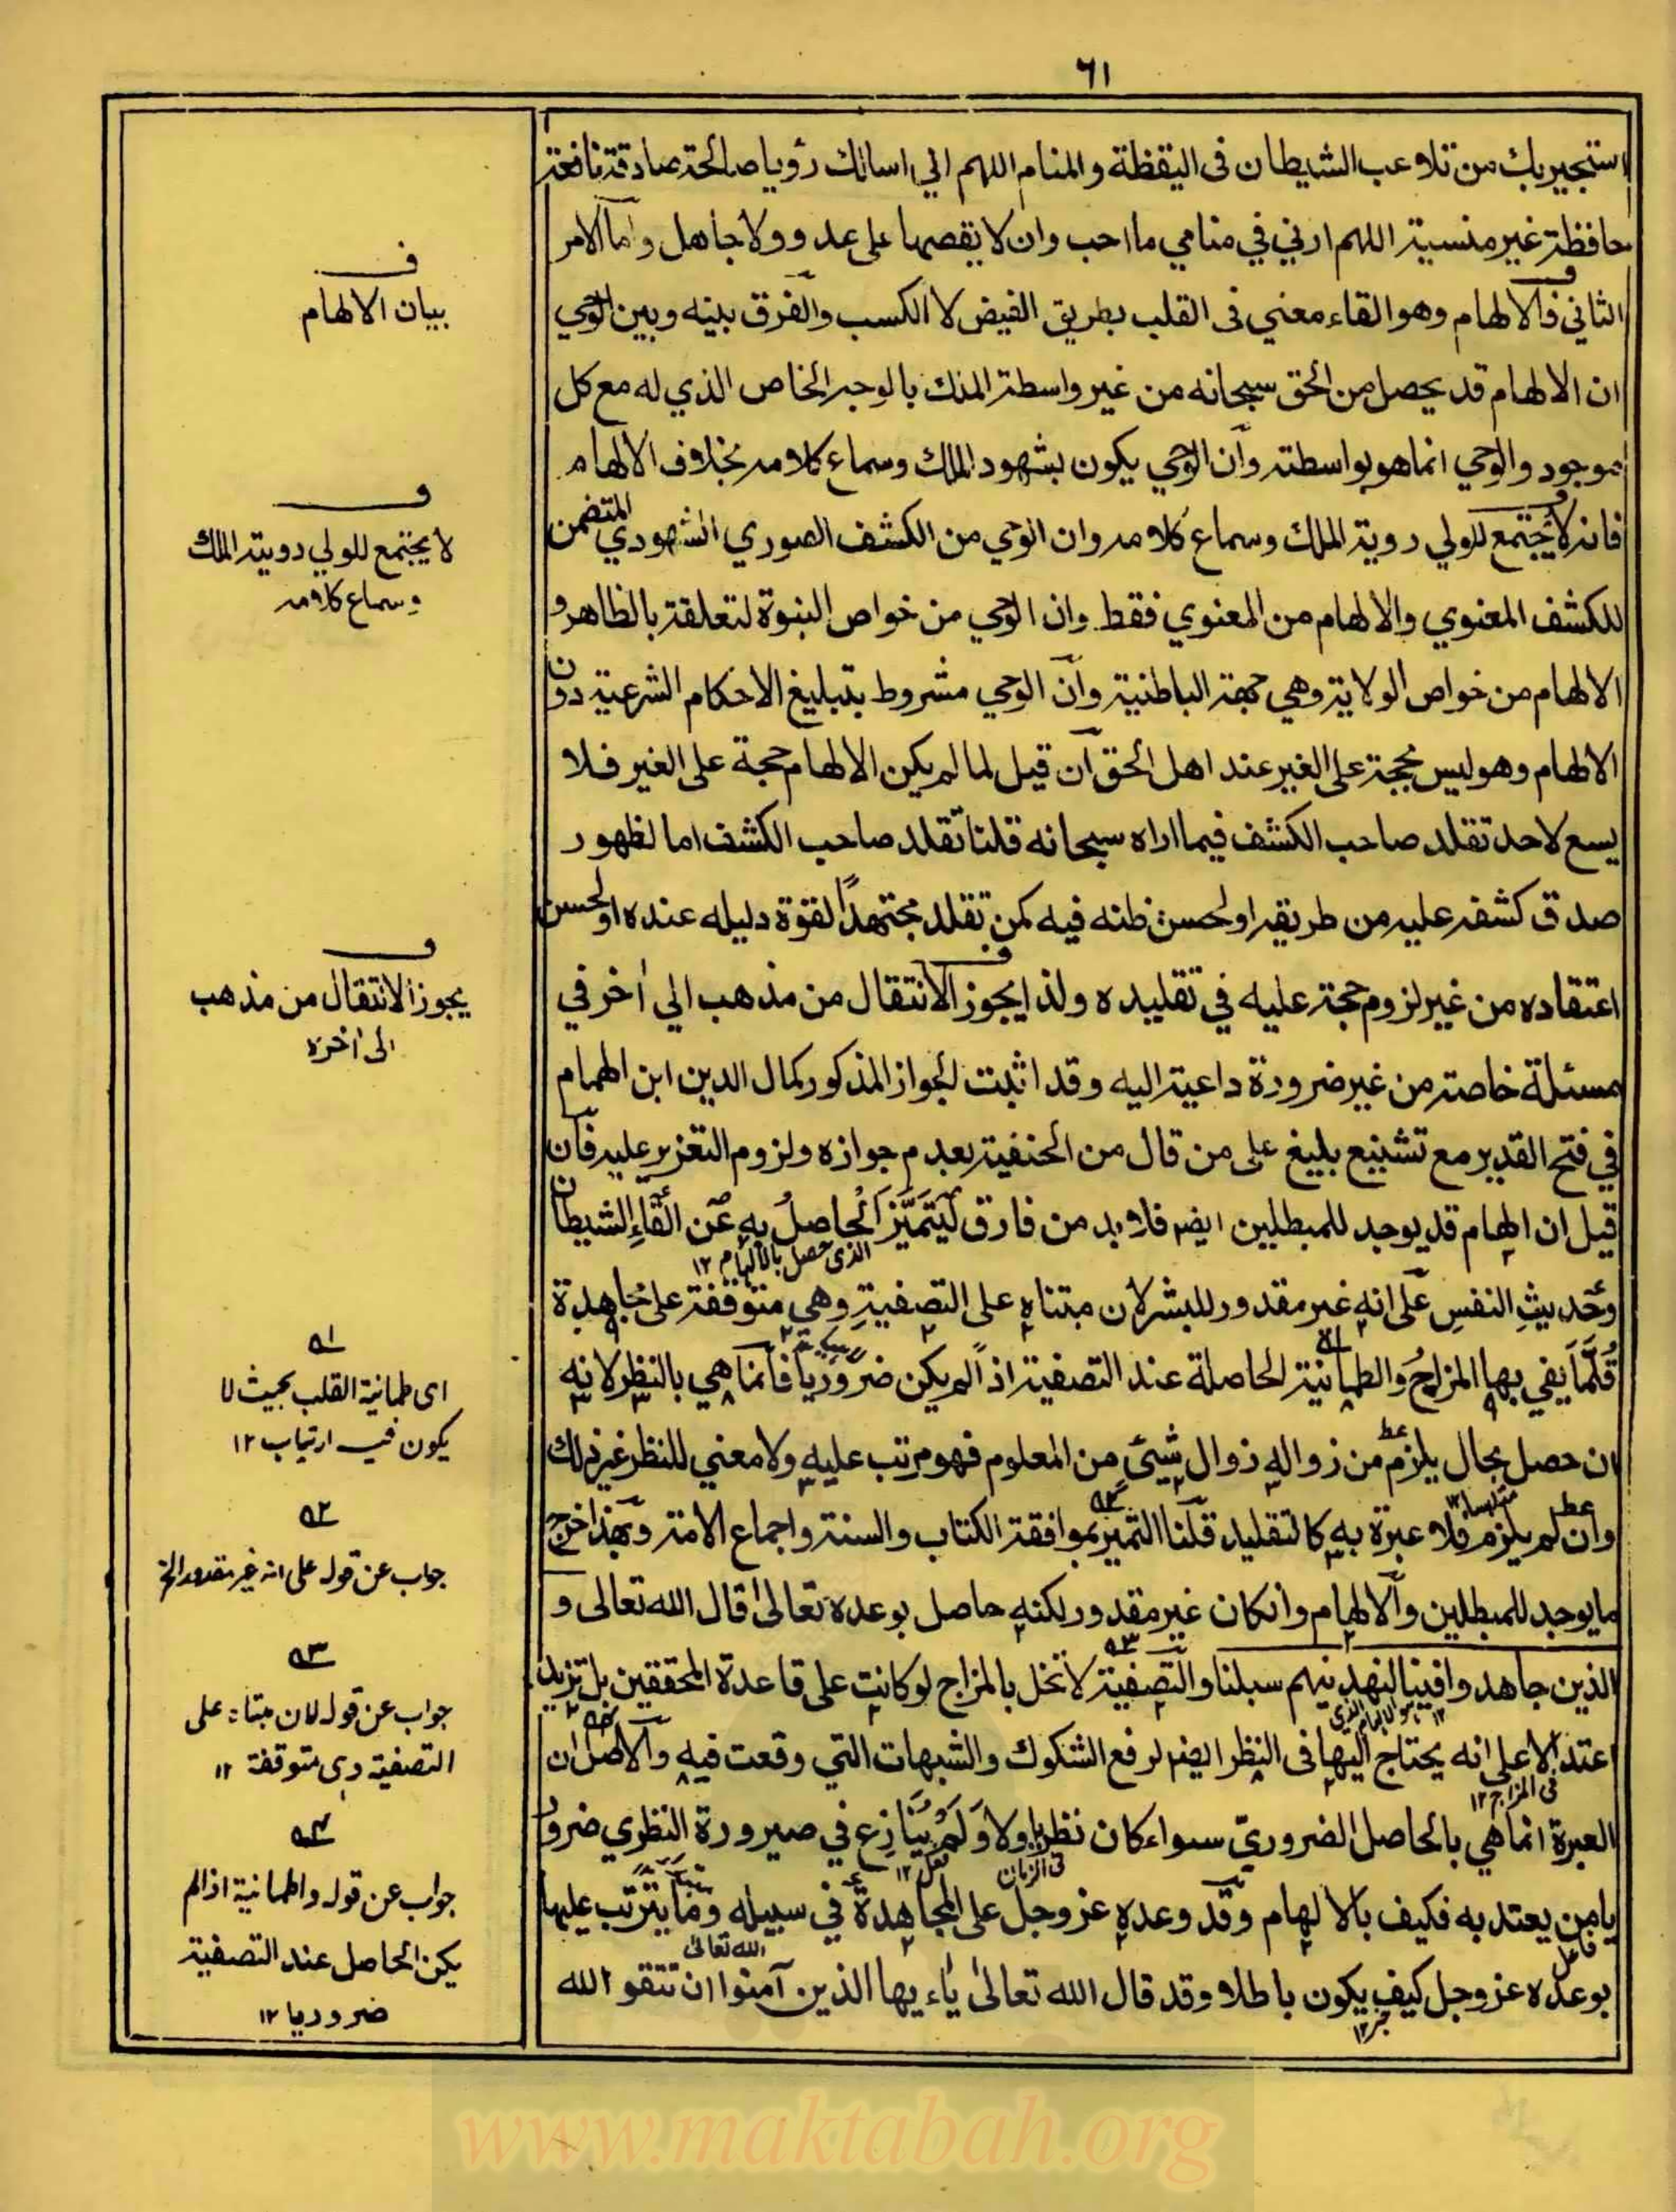 ٦١
استجير بك من تلاعب الشيطان فى اليقظة والمنام اللهم اني اسالك رؤيا صالحة صادقة نافعة
حافظة غير منسية اللهم ارني في منامي ما احب وان لا يقصها على عدو ولا جاهل واما الامر
الثاني فالالهام وهو القاء معني فى القلب بطريق الفيض لا الكسب والفرق بينه وبين الوحي
ان الالهام قد يحصل من الحق سبحانه من غير واسطة الملك بالوجه الخاص الذي له مع كل
موجود والوحي انما هو بواسطته وان الوحي يكون بشهود الملك وسماع كلامه بخلاف الالهام
فانه لا يجتمع للولي روية الملك وسماع كلامه وان الوحي من الكشف الصوري الشهودي المتضمن
للكشف المعنوي والالهام من المعنوي فقط وان الوحي من خواص النبوة لتعلقه بالظاهر و
الالهام من خواص الولاية وهي جهة الباطنية وان الوحي مشروط بتبليغ الاحكام الشرعية دون
الالهام وهو ليس بحجة على الغير عند اهل الحق ان قيل لما لم يكن الالهام حجة على الغير فلا
يسع لاحد تقلد صاحب الكشف فيما اراه سبحانه قلنا تقلد صاحب الكشف اما لظهور
صدق كشفه عليه من طريقه او لحسن ظنه فيه كمن تقلد مجتهدًا لقوة دليله عنده او لحسن
اعتقاده من غير لزوم حجة عليه في تقليده ولذا يجوز الانتقال من مذهب الي اخر في
مسئلة خاصة من غير ضرورة داعية اليه وقد اثبت الجواز المذكور كمال الدين ابن الهمام
في فتح القدير مع تشنيع بليغ على من قال من الحنفية بعدم جوازه ولزوم التعزير عليه فان
قيل ان الهام قد يوجد للمبطلين ايضا فلا بد من فارق ليَتَمَيَّز الحاصلُ بهِ عن القاءِ الشيطان
الذى حصل بالالهام ١٢
وحديثِ النفسِ على انه غير مقدور للبشر لان مبتناه على التصفية وهي متوقفة على مجاهدة
قلّما يفي بها المزاجُ والطمانية الحاصلة عند التصفية اذا لم يكن ضروريا فانما هي بالنظر لانه
ان حصل بحال يلزم من زواله زوال شيئ من المعلوم فهو مرتب عليه ولا معني للنظر غير ذلك
وان لم يلزم فلا عبرة به كالتقليد قلنا التميز بموافقة الكتاب والسنة واجماع الامة وبهذا خرج
ما يوجد للمبطلين والالهام وانكان غير مقدور لكنه حاصل بوعده تعالى قال الله تعالى و
الذين جاهدوا فينا لنهدينهم سبلنا والتصفية لا تخل بالمزاج لو كانت على قاعدة المحققين بل تزيد
اعتدالا على انه يحتاج اليها فى النظر ايضا لرفع الشكوك والشبهات التي وقعت فيه والاصل ان
فى المزاج ١٢
العبرة انما هي بالحاصل الضروريّ سواء كان نظريا اولا ولم يُنازع في صيرورة النظري ضرور
فى الزمان
يا من يعتد به فكيف بالالهام وقد وعده عز وجل على المجاهدة في سبيله وما يترتب عليها
فاعل
الله تعالى
بوعده عز وجل كيف يكون باطلا وقد قال الله تعالى ياءيها الذين آمنوا ان تتقوا الله
خبر ١٢
ف
بيان الالهام
ف
لا يجتمع للولي روية الملك
وسماع كلامه
ف
يجوز الانتقال من مذهب
الى اخره
١ه
اى طمانية القلب بحيث لا
يكون فيه ارتياب ١٢
٢ه
جواب عن قوله على انه غير مقدور الخ
٣ه
جواب عن قوله لان مبتناه على
التصفية وهى متوقفة ١٢
٤ه
جواب عن قوله والطمانية اذا لم
يكن الحاصل عند التصفية
ضروريا ١٢
www.maktabah.org